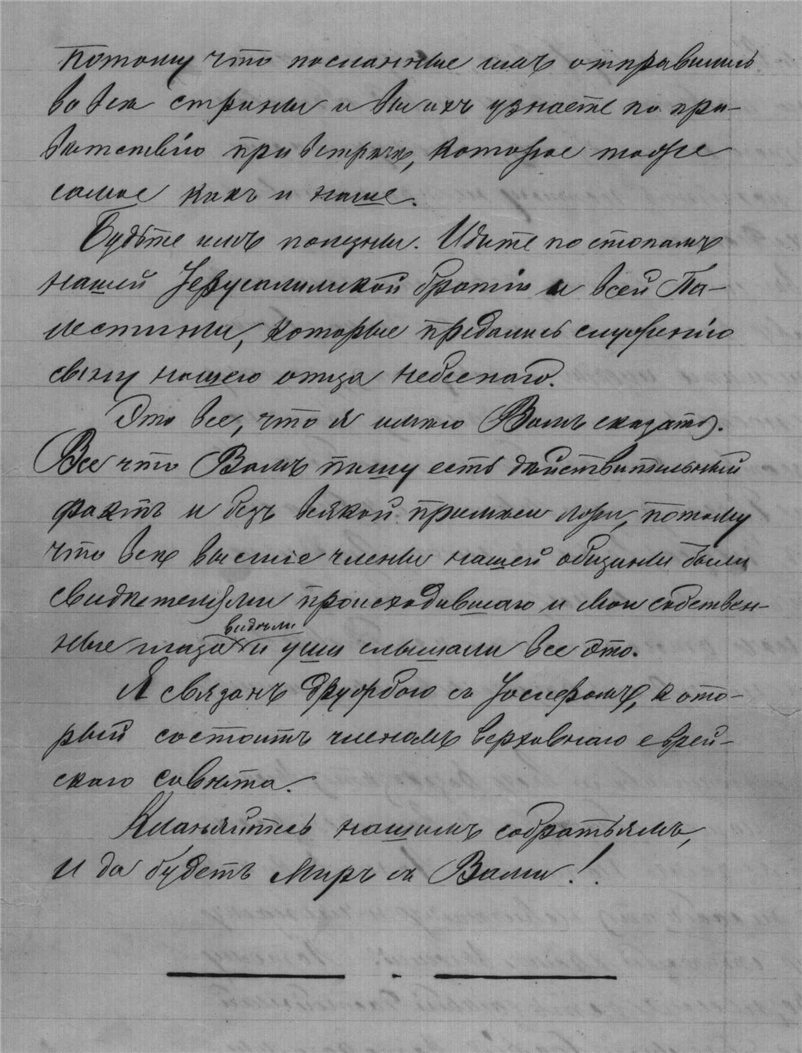 потому что посланные ихъ отправились
во все страны и Вы ихъ узнаете по при-
ветствію при встрече, которое тоже
самое какъ и наше.
Будьте имъ полезны. Идите по стопамъ
нашей Іерусалимской братіи и всей Па-
лестины, которые предались служенію
сыну нашего отца небеснаго.
Это все, что я имею Вамъ сказать.
Все что Вамъ пишу есть действительный
фактъ и безъ всякой примеси лжи, потому
что все высшіе члены нашей общины были
свидетелями происходившаго и мои собствен-
ные глаза видели и уши слышали все это.
Я связанъ дружбою съ Іосифомъ, кото-
рый состоитъ членомъ верховнаго еврей-
скаго совета.
Кланяйтесь нашимъ собратьямъ,
и да будетъ Миръ съ Вами!